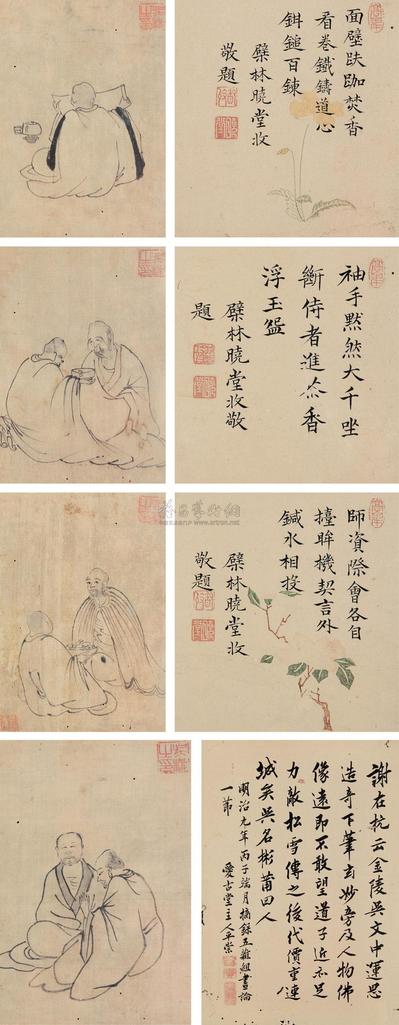 面壁趺跏焚香
看卷鐵鑄道心
鉗鎚百鍊
檗林曉堂收
敬題
袖手黙然大千坐
斷侍者進茶香
浮玉盌
檗林曉堂收敬
題
師資際會各自
擡眸機契言外
鍼水相投
檗林曉堂收
敬題
謝在杭云金陵吳文中運思
造奇下筆玄妙旁及人物佛
像遠即不敢望道子近亦足
力敵松雪傳之後代價重連
城矣吳名彬莆田人
明治九年丙子端月摘錄五雜組畫論
一節
愛古堂主人平崇
雅昌藝術網
www.artron.net